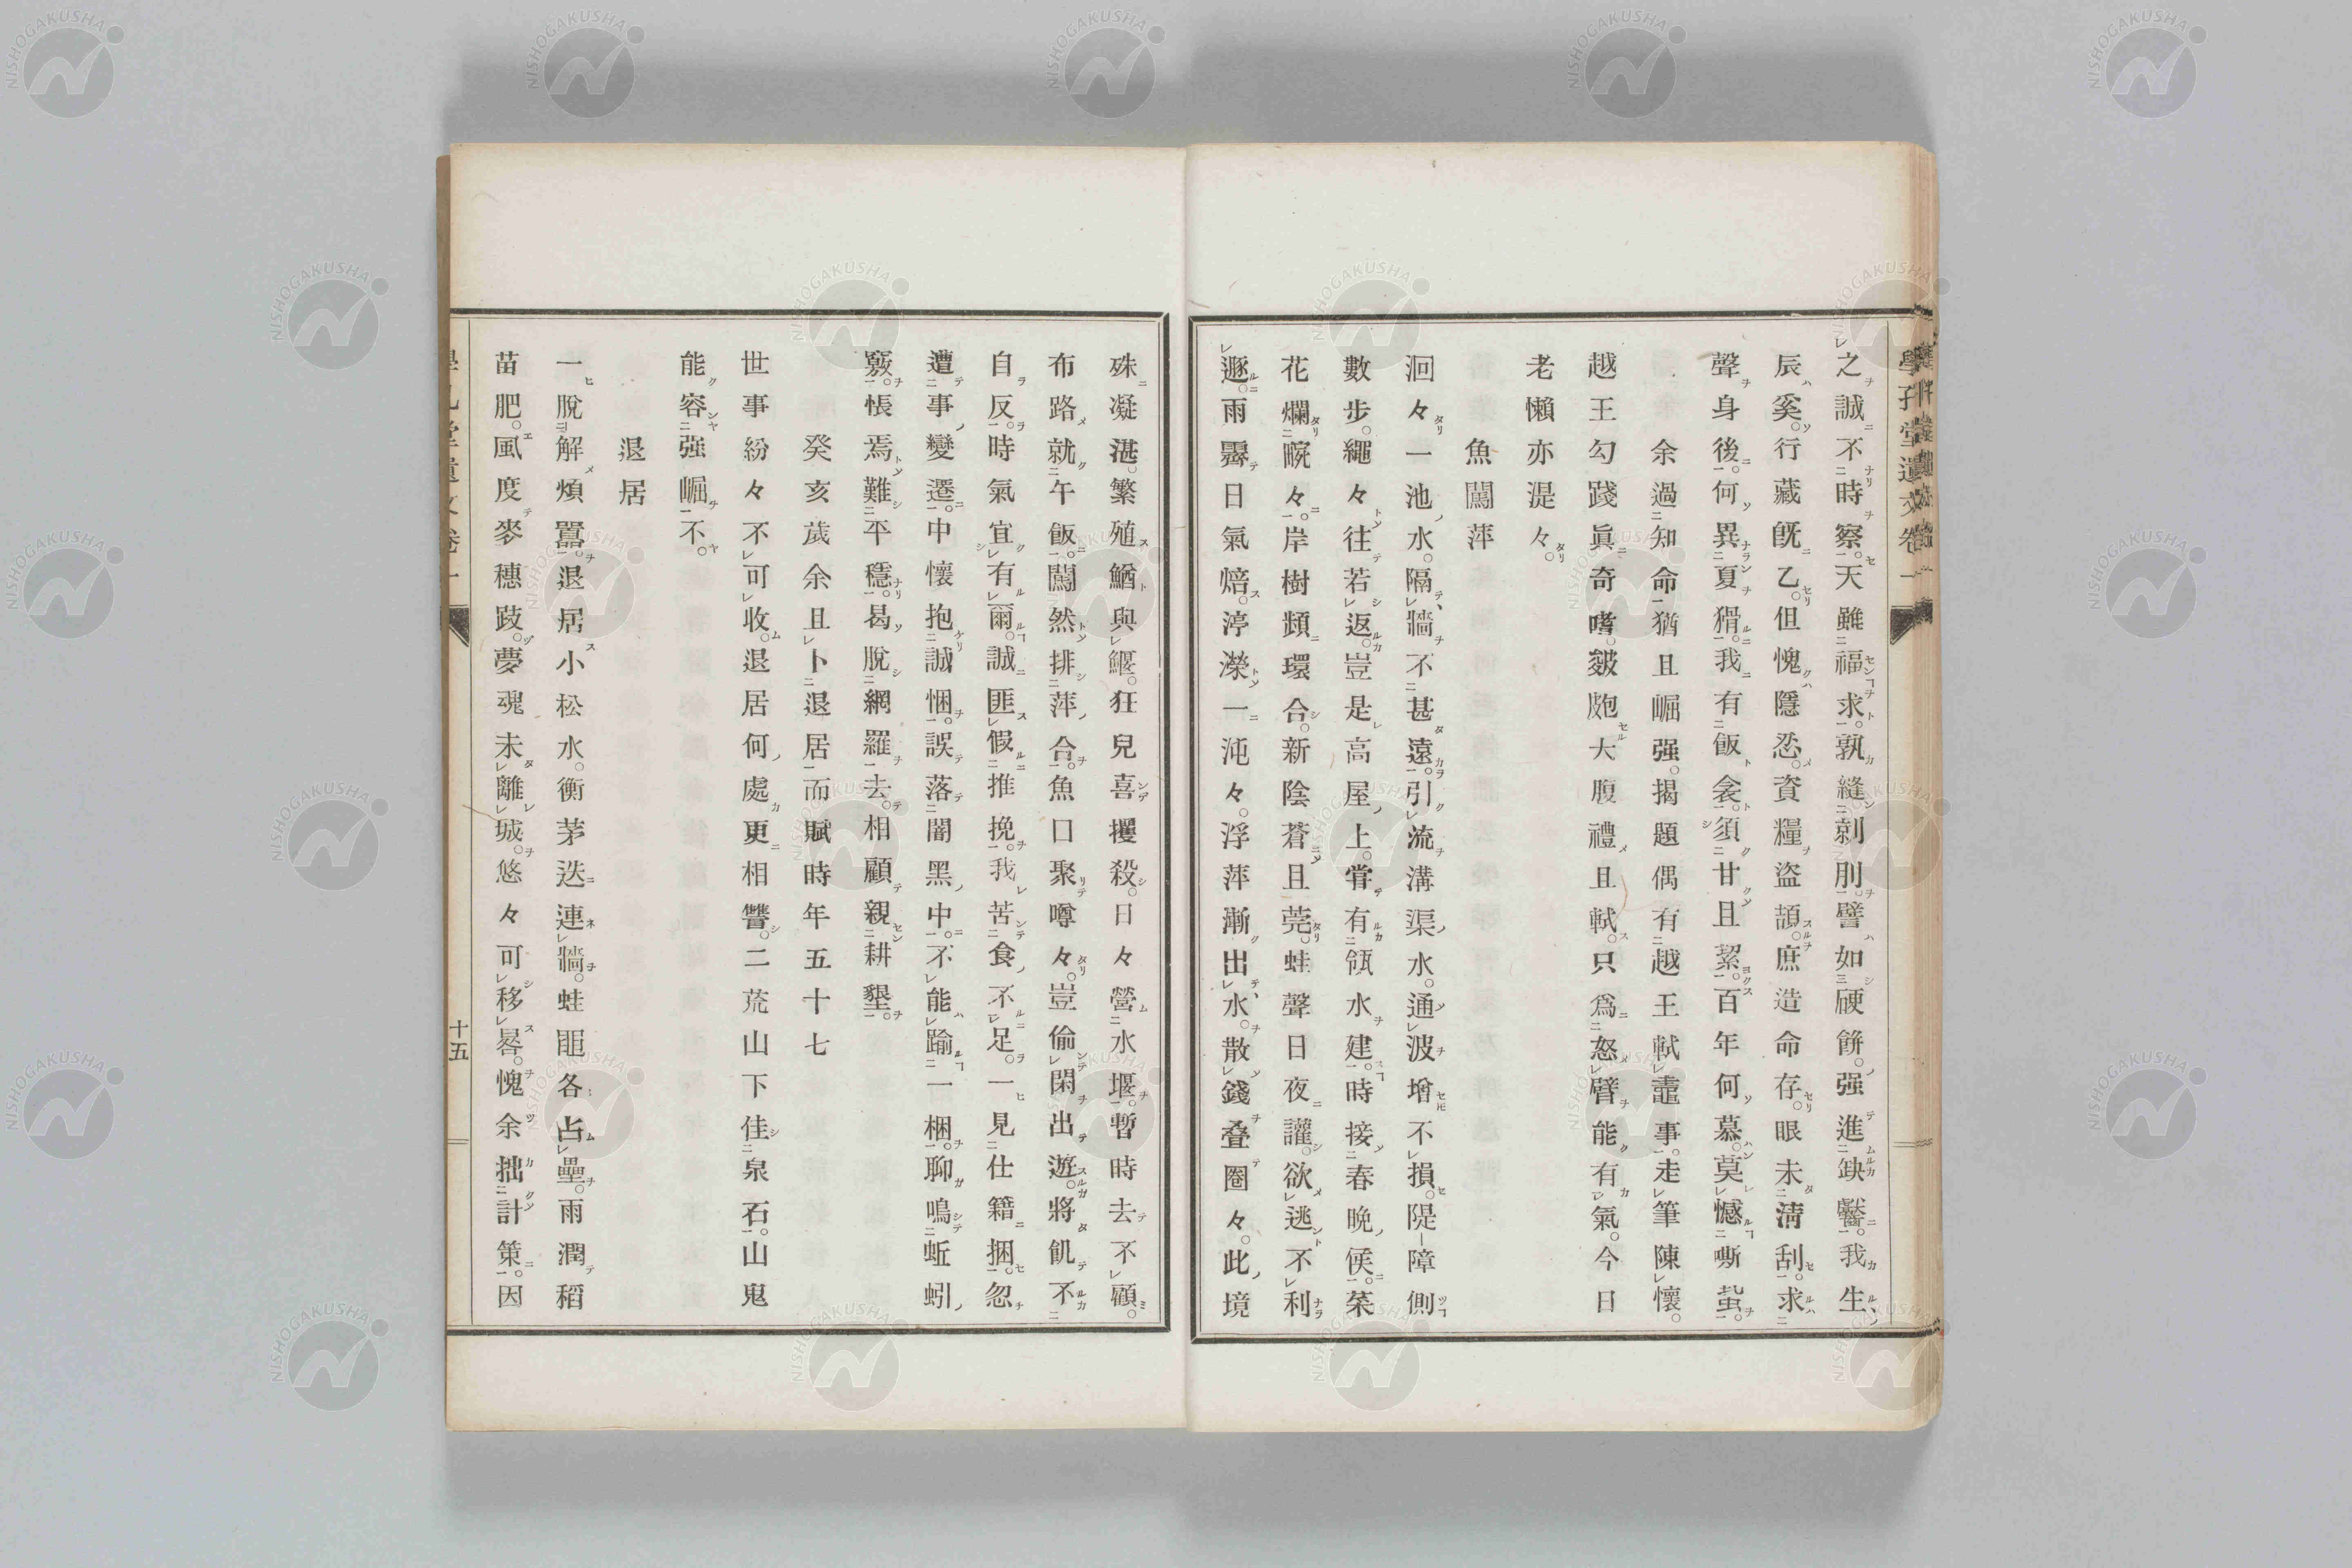 之誠不時察。天雖福求。孰縫剠刖。譬如硬餅。强進缺齾。我生
辰奚。行藏旣乙。但愧隱忩。資糧盜頡。庶造命存。眼未淸刮。求
聲身後。何異夏猾。我有飯衾。須甘且絜。百年何慕。莫憾嘶蚻。
余過知命猶且崛强。揭題偶有越王軾鼃事。走筆陳懷。
越王勾踐眞奇嗜。皴皰大腹禮且軾。只爲怒臂能有氣。今日
老懶亦混々。
魚鬭萍
洄々一池水。隔牆不甚遠。引流溝渠水。通波增不損。隄障側
數步。繩々往若返。豈是高屋上。嘗有瓴水建。時接春晩候。菜
花爛畹々。岸樹頪環合。新陰蒼且莞。蛙聲日夜讙。欲逃不利
遯。雨霽日氣焙。渟濴一沌々。浮萍漸出水。散錢疊圈々。此境
殊凝湛。繁殖鰌與鰋。狂兒喜攫殺。日々營水堰。暫時去不顧。
布路就午飯。鬭然排萍合。魚口聚噂々。豈偷閑出遊。將飢不
自反。時氣宜有爾。誠匪假推挽。我苦食不足。一見仕籍捆。忽
遭事變遷。中懷抱誠悃。誤落闇黑中。不能踰一梱。聊鳴蚯蚓
竅。悵焉難平穩。曷脫網羅去。相顧親耕墾。
癸亥歲余且卜退居而賦時年五十七
世事紛々不可收。退居何處更相讐。二荒山下佳泉石。山鬼
能容强崛不。
退居
一脫解煩囂。退居小松水。衡茅迭連牆。蛙黽各占壘。雨潤稻
苗肥。風度麥穗跂。夢魂未離城。悠々可移晷。愧余拙計策。因
學孔堂遺文卷一
十五
NISHOGAKUSHA